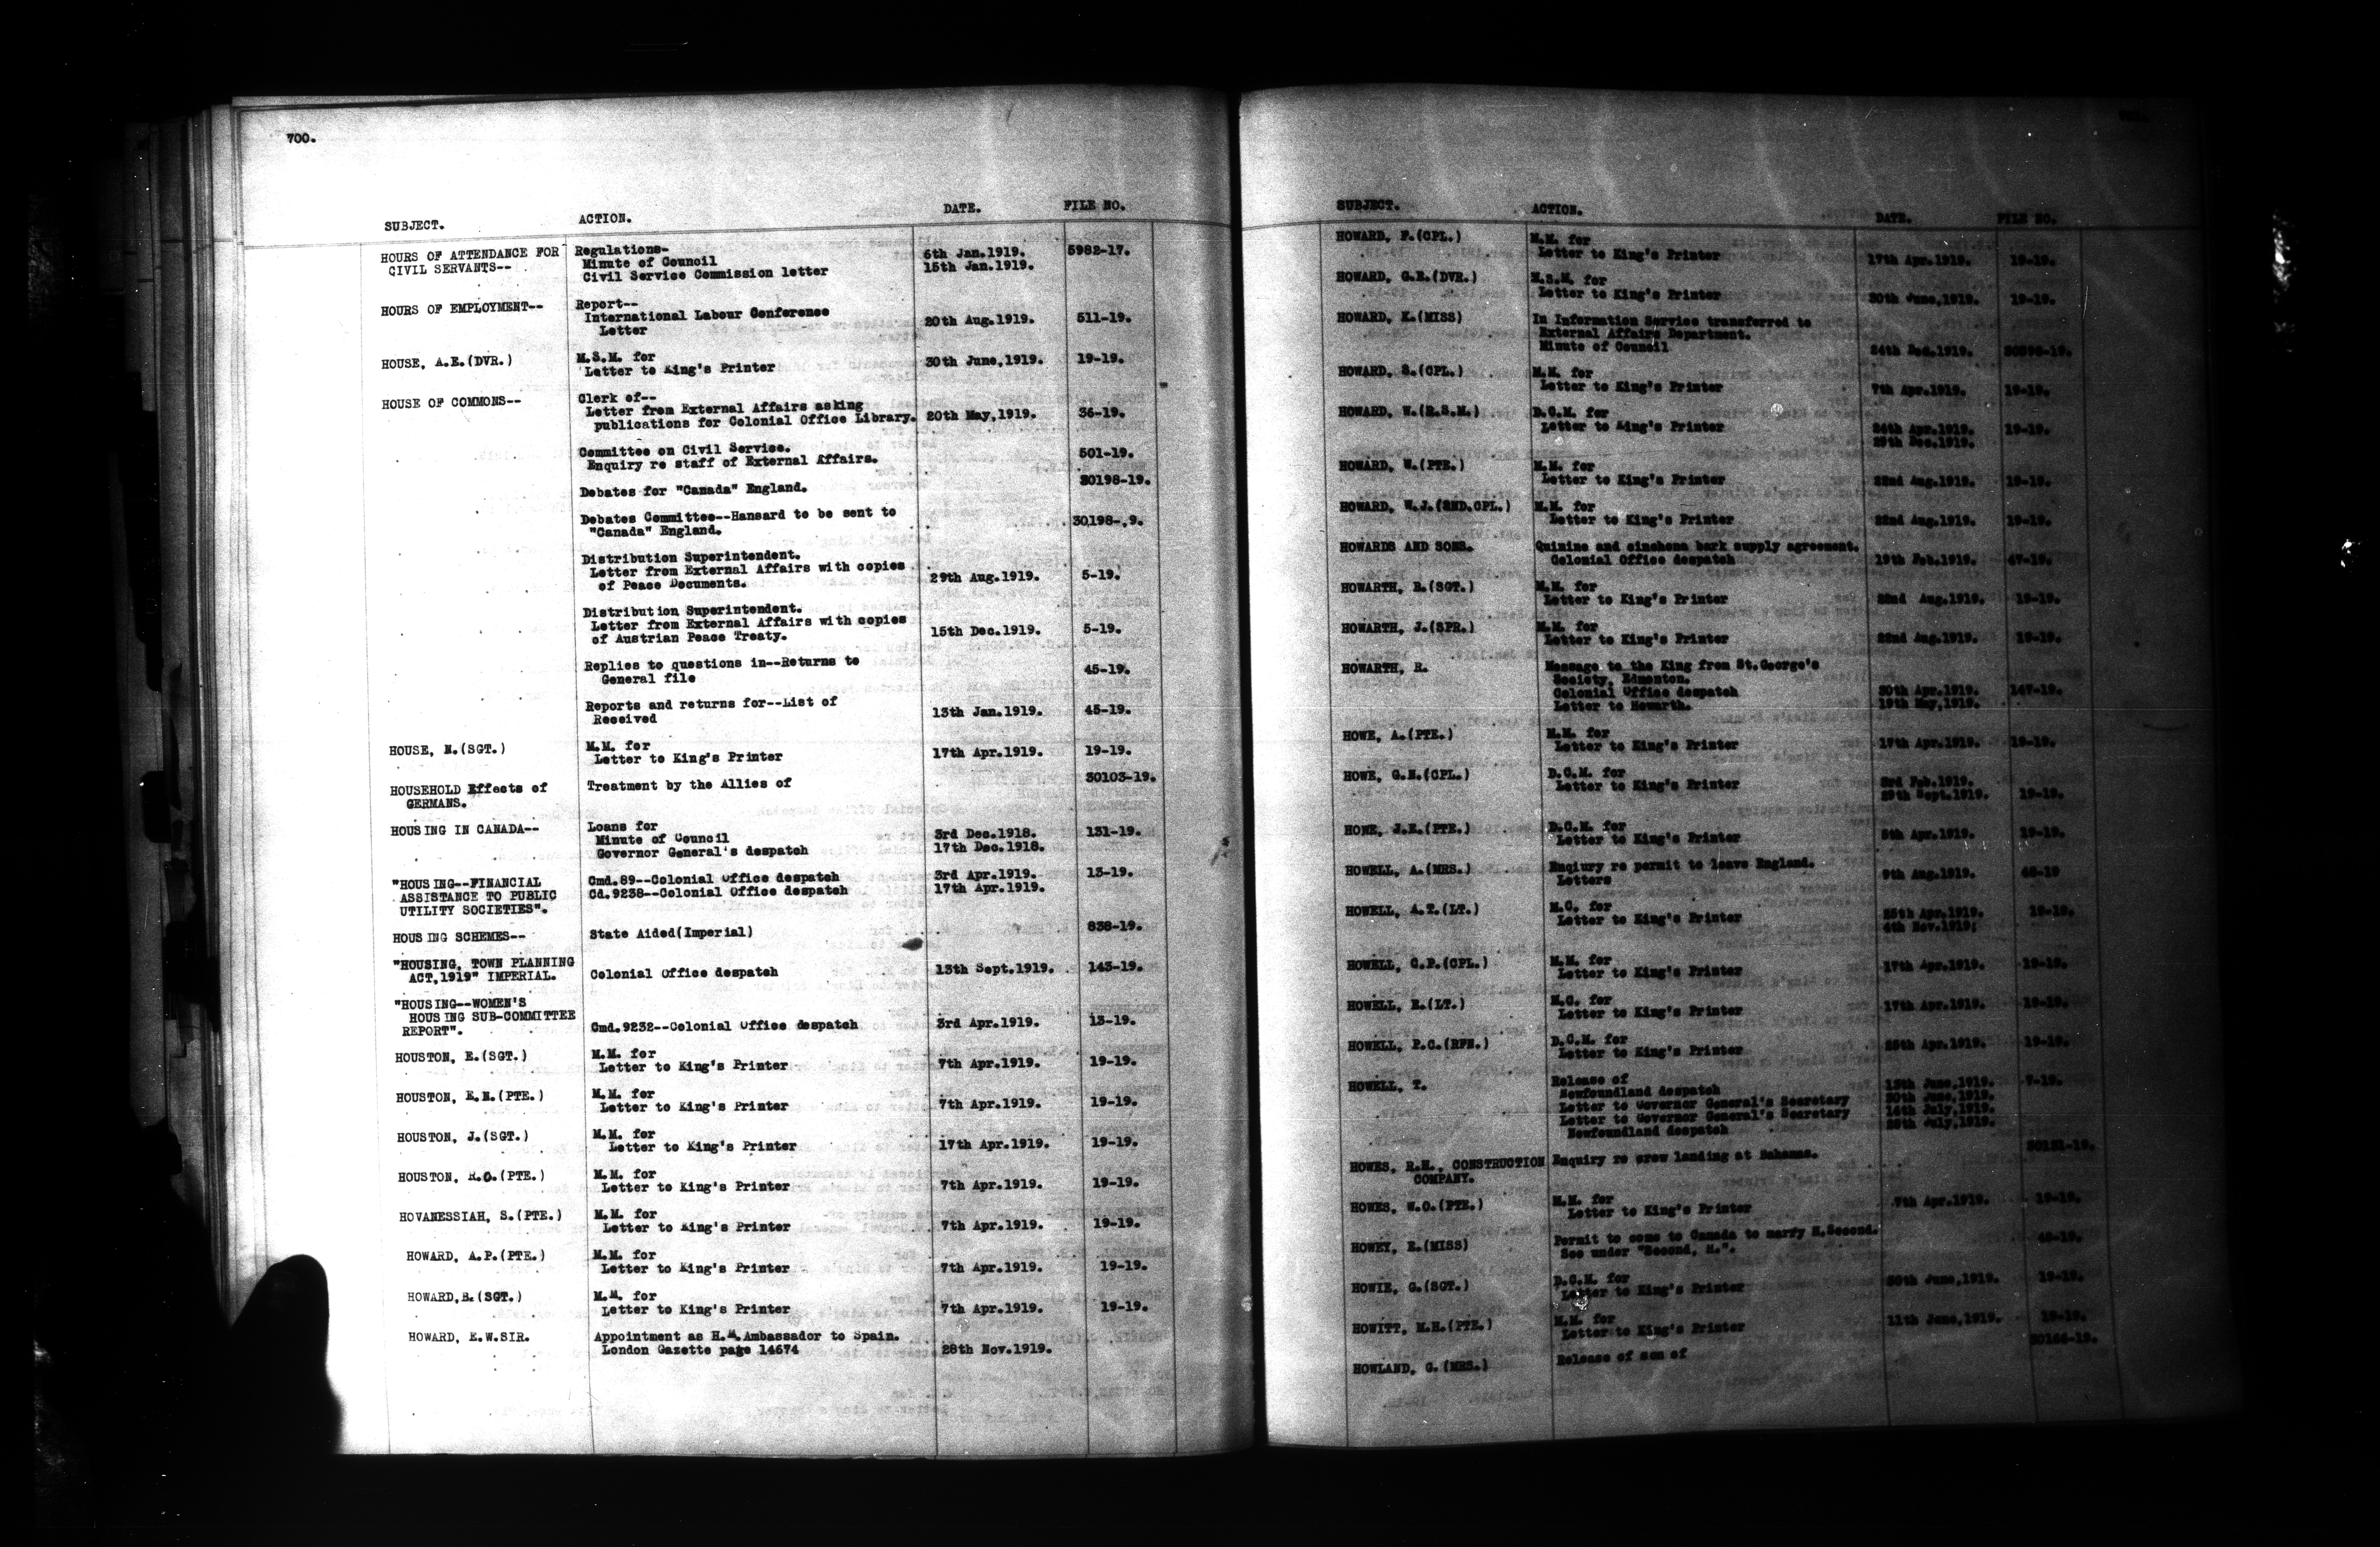 700.
SUBJECT. ACTION. DATE. FILE NO.
HOURS OF ATTENDANCE FOR Regulations-
CIVIL SERVANTS-- Minute of Council 6th Jan.1919. 5982-17.
Civil Service Commission letter 15th Jan.1919.
HOURS OF EMPLOYMENT-- Report--
International Labour Conference
Letter 20th Aug.1919. 511-19.
HOUSE, A.E.(DVR.) M.S.M. for
Letter to King's Printer 30th June,1919. 19-19.
HOUSE OF COMMONS-- Clerk of--
Letter from External Affairs asking
publications for Colonial Office Library. 20th May,1919. 36-19.
Committee on Civil Service.
Enquiry re staff of External Affairs. 501-19.
Debates for "Canada" England. 30198-19.
Debates Committee--Hansard to be sent to
"Canada" England. 30198-.9.
Distribution Superintendent.
Letter from External Affairs with copies
of Peace Documents. 29th Aug.1919. 5-19.
Distribution Superintendent.
Letter from External Affairs with copies
of Austrian Peace Treaty. 15th Dec.1919. 5-19.
Replies to questions in--Returns to
General file 45-19.
Reports and returns for--List of
Received 13th Jan.1919. 45-19.
HOUSE, N.(SGT.) M.M. for
Letter to King's Printer 17th Apr.1919. 19-19.
HOUSEHOLD Effects of Treatment by the Allies of 30103-19.
GERMANS.
HOUSING IN CANADA-- Loans for
Minute of Council 3rd Dec.1918. 131-19.
Governor General's despatch 17th Dec.1918.
"HOUSING--FINANCIAL Cmd.89--Colonial Office despatch 3rd Apr.1919. 13-19.
ASSISTANCE TO PUBLIC Cd.9238--Colonial Office despatch 17th Apr.1919.
UTILITY SOCIETIES".
HOUSING SCHEMES-- State Aided(Imperial) 838-19.
"HOUSING, TOWN PLANNING
ACT,1919" IMPERIAL. Colonial Office despatch 13th Sept.1919. 143-19.
"HOUSING--WOMEN'S
HOUSING SUB-COMMITTEE
REPORT". Cmd.9232--Colonial Office despatch 3rd Apr.1919. 13-19.
HOUSTON, E.(SGT.) M.M. for
Letter to King's Printer 7th Apr.1919. 19-19.
HOUSTON, E.N.(PTE.) M.M. for
Letter to King's Printer 7th Apr.1919. 19-19.
HOUSTON, J.(SGT.) M.M. for
Letter to King's Printer 17th Apr.1919. 19-19.
HOUSTON, R.O.(PTE.) M.M. for
Letter to King's Printer 7th Apr.1919. 19-19.
HOVANESSIAH, S.(PTE.) M.M. for
Letter to King's Printer 7th Apr.1919. 19-19.
HOWARD, A.P.(PTE.) M.M. for
Letter to King's Printer 7th Apr.1919. 19-19.
HOWARD,B.(SGT.) M.M. for
Letter to King's Printer 7th Apr.1919. 19-19.
HOWARD, E.W.SIR. Appointment as H.M.Ambassador to Spain.
London Gazette page 14674 28th Nov.1919.
SUBJECT. ACTION. DATE. FILE NO.
HOWARD, F.(CPL.) M.M. for
Letter to King's Printer 17th Apr.1919. 19-19.
HOWARD, G.E.(DVR.) M.S.M. for
Letter to King's Printer 30th June,1919. 19-19.
HOWARD, K.(MISS) In Information Service transferred to
External Affairs Department.
Minute of Council 24th Dec.1919.
HOWARD, S.(CPL.) M.M. for
Letter to King's Printer 7th Apr.1919. 19-19.
HOWARD, W.(R.S.M.) D.C.M. for
Letter to King's Printer 24th Apr.1919. 19-19.
Dec.1919.
HOWARD, W.(PTE.) M.M. for
Letter to King's Printer 22nd Aug.1919. 19-19.
HOWARD, W.J.(2ND.CPL.) M.M. for
Letter to King's Printer 22nd Aug.1919. 19-19.
HOWARDS AND SONS. Quinine and cinchona bark supply agreement.
Colonial Office despatch 19th Feb.1919. 47-19.
HOWARTH, B.(SGT.) M.M. for
Letter to King's Printer 22nd Aug.1919. 19-19.
HOWARTH, J.(SPR.) M.M. for
Letter to King's Printer 22nd Aug.1919. 19-19.
HOWARTH, R. Message to the King from St.George's
Society, Edmonton.
Colonial Office despatch 30th Apr.1919. 147-19.
Letter to Howarth. 19th May,1919.
HOWE, A.(PTE.) M.M. for
Letter to King's Printer 17th Apr.1919. 19-19.
HOWE, G.N.(CPL.) D.C.M. for
Letter to King's Printer 3rd Feb.1919.
29th Sept.1919. 19-19.
HOWE, J.E.(PTE.) D.C.M. for
Letter to King's Printer Apr.1919. 19-19.
HOWELL, A.(MRS.) Enqiury re permit to leave England.
Letters 9th Aug.1919. 48-19
HOWELL, A.T.(LT.) M.C. for
Letter to King's Printer 25th Apr.1919. 19-19.
4th Nov.1919;
HOWELL, C.P.(CPL.) M.M. for
Letter to King's Printer 17th Apr.1919. 19-19.
HOWELL, E.(LT.) M.C. for
Letter to King's Printer 17th Apr.1919. 19-19.
HOWELL, P.C.(RFN.) D.C.M. for
Letter to King's Printer 25th Apr.1919. 19-19.
HOWELL, T. Release of
Newfoundland despatch 13th June,1919. 7-19.
Letter to Governor General's Secretary 30th June,1919.
Letter to Governor General's Secretary 14th July,1919.
Newfoundland despatch July,1919.
HOWES, R.H., CONSTRUCTION Enquiry re crew landing at Bahamas.
COMPANY.
HOWES, W.O.(PTE.) M.M. for
Letter to King's Printer 7th Apr.1919. 19-19.
HOWEY, E.(MISS) Permit to come to Canada to marry H.Second.
See under "Second, H.". 48-19.
HOWIE, G.(SGT.) D.C.M. for
Letter to King's Printer 30th June,1919. 19-19.
HOWITT, M.H.(PTE.) M.M. for
Letter to King's Printer 11th June,1919. 19-19.
HOWLAND, G.(MRS.) Release of son of